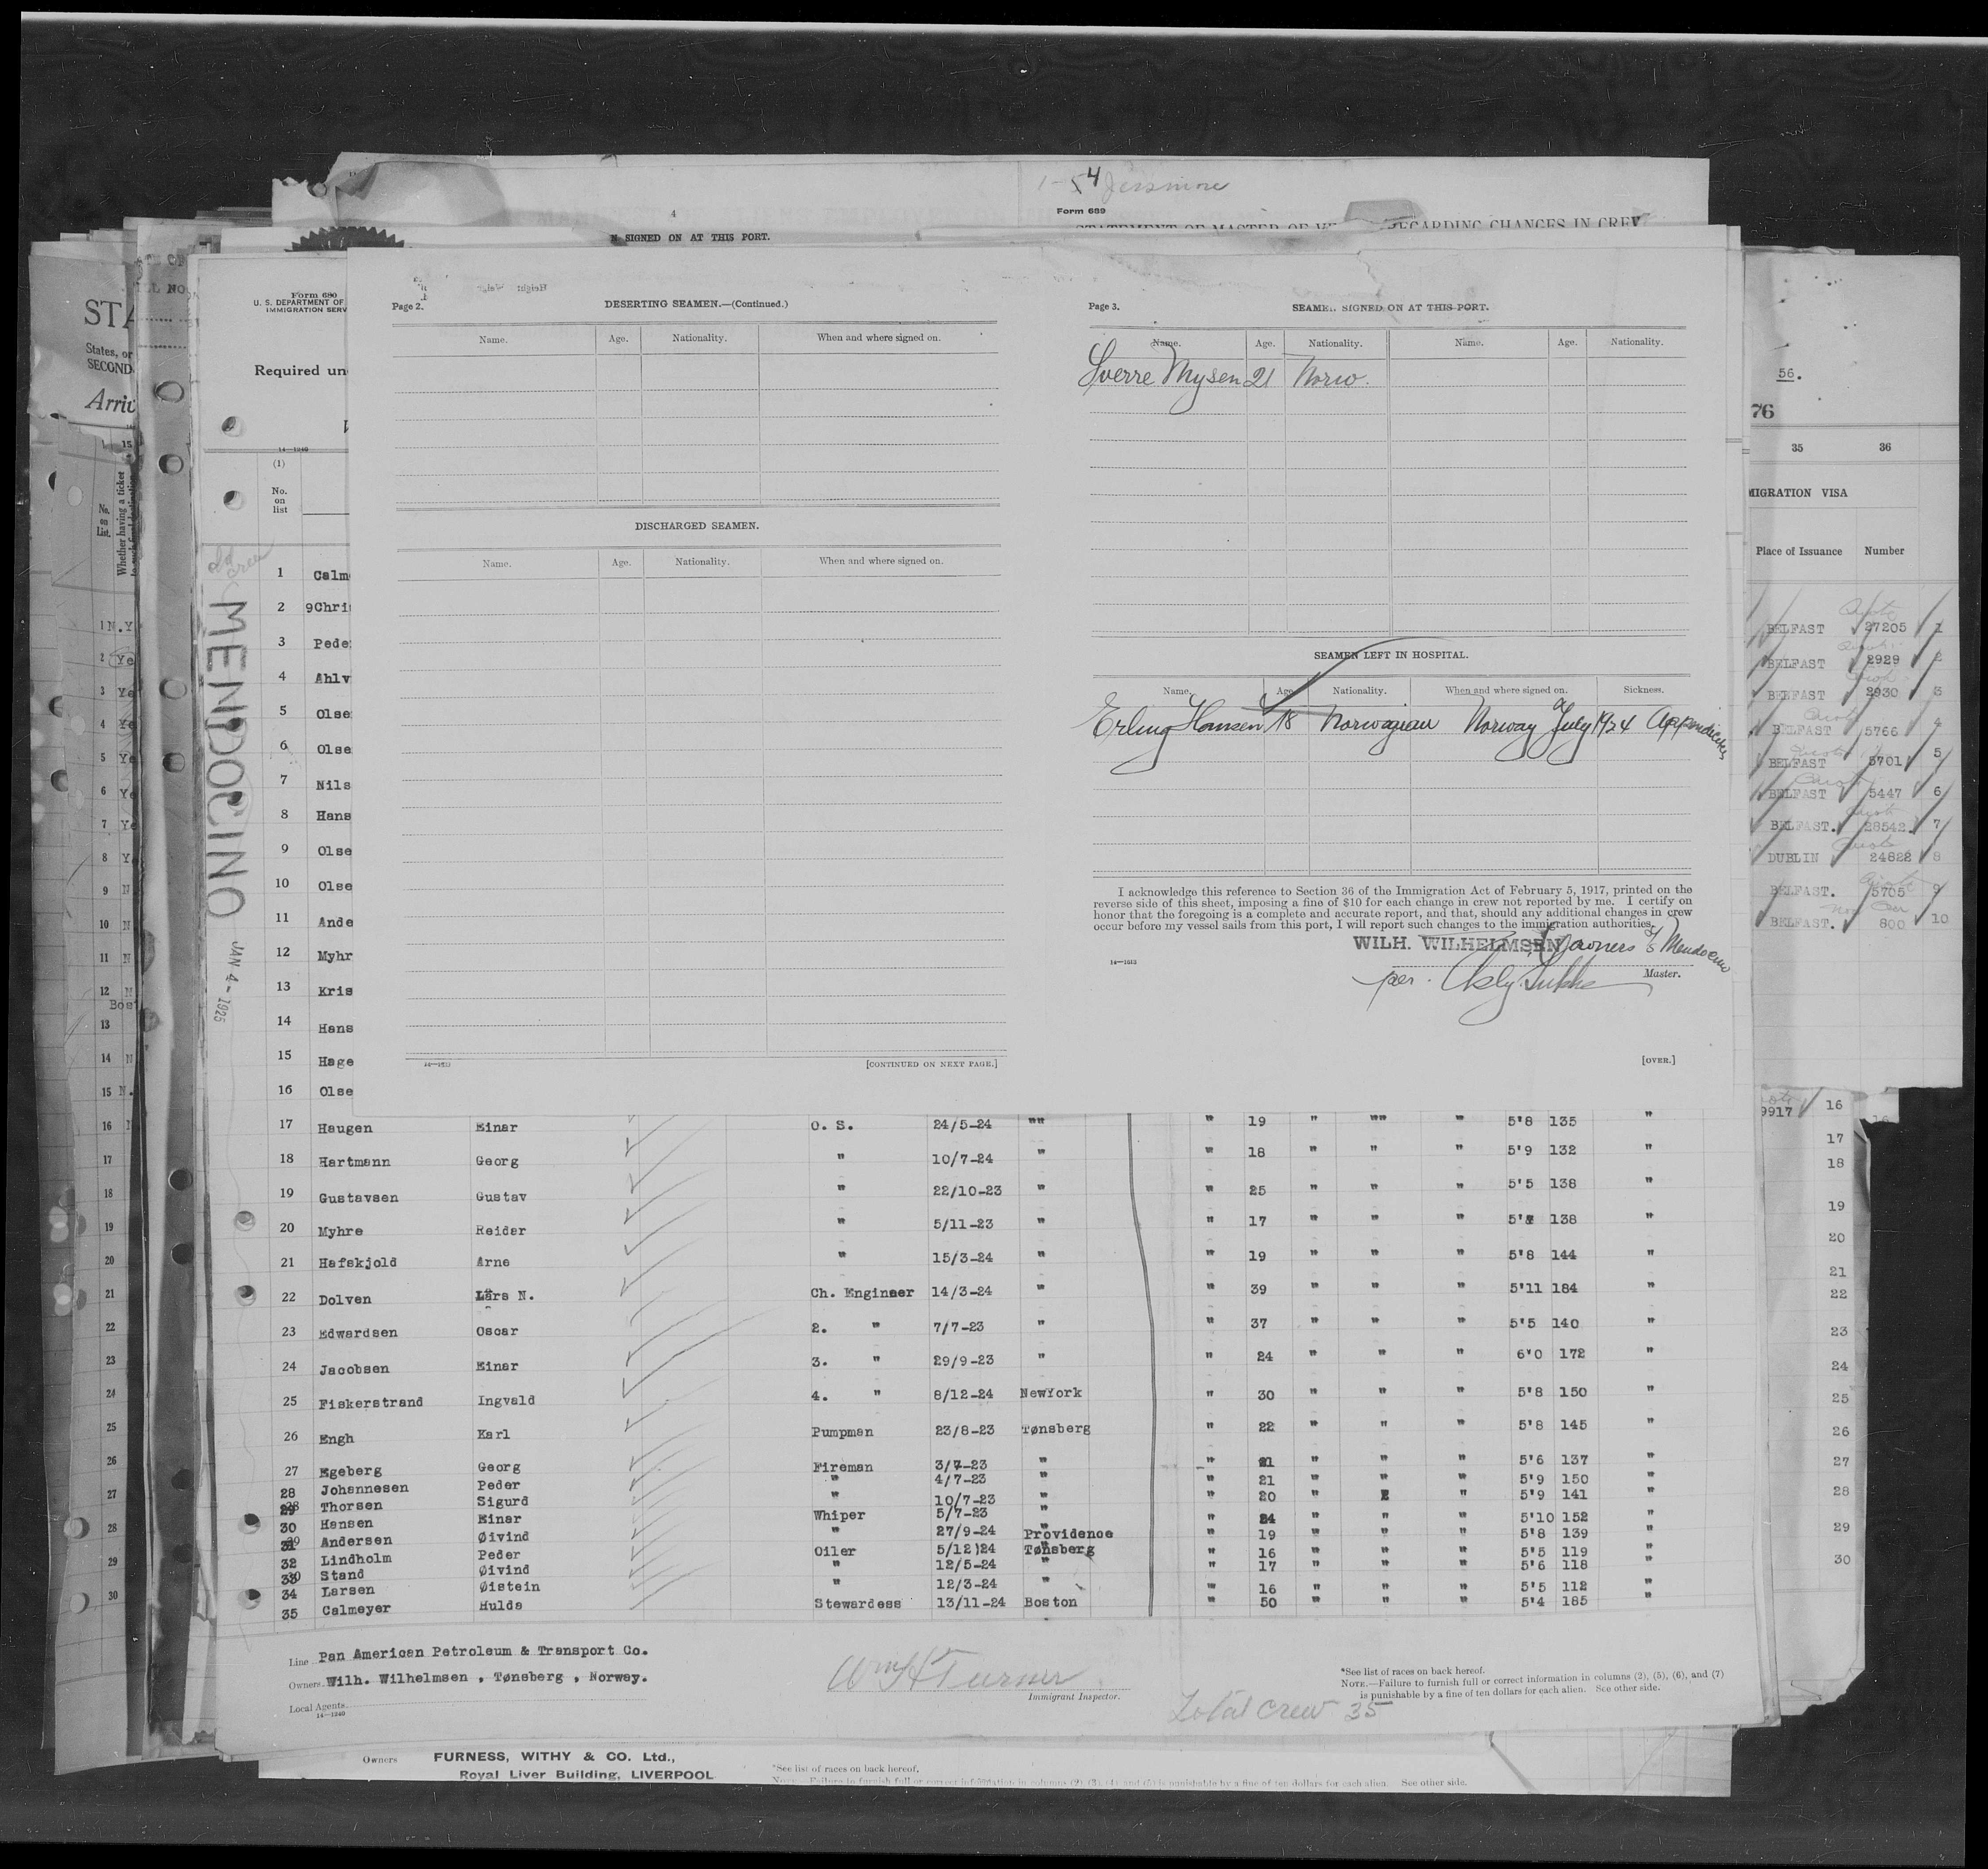 1-54 Jessmore
4
Form 689
STATEMENT OF MASTER OF REGARDING CHANGES IN CREW
SIGNED ON AT THIS PORT.
STA
States, or
SECOND
Arriv
Form 680
U. S. DEPARTMENT OF
IMMIGRATION SERV
Required un
14—1240
(1)
No.
on
list
MENDOCINO
JAN 4 - 1925
Page 2.
DESERTING SEAMEN.—(Continued.)
Name. Age. Nationality. When and where signed on.
DISCHARGED SEAMEN.
Name. Age. Nationality. When and where signed on.
[CONTINUED ON NEXT PAGE.]
Page 3.
SEAMEN SIGNED ON AT THIS PORT.
Name. Age. Nationality. Name. Age. Nationality.
Sverre Mysen 21 Norw.
SEAMEN LEFT IN HOSPITAL.
Name. Age. Nationality. When and where signed on. Sickness.
Erling Hansen 18 Norwagian Norway July 1924
I acknowledge this reference to Section 36 of the Immigration Act of February 5, 1917, printed on the
reverse side of this sheet, imposing a fine of $10 for each change in crew not reported by me. I certify on
honor that the foregoing is a complete and accurate report, and that, should any additional changes in crew
occur before my vessel sails from this port, I will report such changes to the immigration authorities.
WILH. WILHELMSEN owners of Mendocino
per.
Master.
14—1613
[OVER.]
1 Calm
2 9Chri
3 Pede
4 Ahlv
5 Olse
6 Olse
7 Nils
8 Hans
9 Olse
10 Olse
11 Ande
12 Myhr
13 Kris
14 Hans
15 Hage
16 Olse
17 Haugen Einar O. S. 24/5-24 "" " 19 " "" " 5'8 135 "
18 Hartmann Georg " 10/7-24 " " 18 " " " 5'9 132 "
19 Gustavsen Gustav " 22/10-23 " " 25 " " " 5'5 138 "
20 Myhre Reider " 5/11-23 " " 17 " " " 138 "
21 Hafskjold Arne " 15/3-24 " " 19 " " " 5'8 144 "
22 Dolven Lars N. Ch. Engineer 14/3-24 " " 39 " " " 5'11 184 "
23 Edwardsen Oscar 2. " 7/7-23 " " 37 " " " 5'5 140 "
24 Jacobsen Einar 3. " 29/9-23 " " 24 " " " 6'0 172 "
25 Fiskerstrand Ingvald 4. " 8/12-24 NewYork " 30 " " " 5'8 150 "
26 Engh Karl Pumpman 23/8-23 Tønsberg " 22 " " " 5'8 145 "
27 Egeberg Georg Fireman 3/7-23 " " 21 " " " 5'6 137 "
28 Johannesen Peder " 4/7-23 " " 21 " " " 5'9 150 "
29 Thorsen Sigurd " 10/7-23 " " 20 " " 5'9 141 "
30 Hansen Einar Whiper 5/7-23 " " 24 " " " 5'10 152 "
31 Andersen Øivind " 27/9-24 Providence " 19 " " " 5'8 139 "
32 Lindholm Peder Oiler 5/12)24 Tønsberg " 16 " " " 5'5 119 "
33 Stand Øivind " 12/5-24 " " 17 " " " 5'6 118 "
34 Larsen Øistein " 12/3-24 " " 16 " " " 5'5 112 "
35 Calmeyer Hulda Stewardess 13/11-24 Boston " 50 " " " 5'4 185 "
Line Pan American Petroleum & Transport Co.
Owners Wilh. Wilhelmsen , Tønsberg , Norway.
Local Agents
14—1240
Wm H Turner
Immigrant Inspector.
Total Crew 35
*See list of races on back hereof.
NOTE.—Failure to furnish full or correct information in columns (2), (5), (6), and (7)
is punishable by a fine of ten dollars for each alien. See other side.
Owners FURNESS, WITHY & CO. Ltd.,
Royal Liver Building, LIVERPOOL
*See list of races on back hereof.
NOTE.—Failure to furnish full or correct information in columns (2), (3), (4) and (5) is punishable by a fine of ten dollars for each alien. See other side.
56.
76
35 36
MIGRATION VISA
Place of Issuance Number
BELFAST 27205 1
BELFAST 2929 2
BELFAST 2930 3
BELFAST 5766 4
BELFAST 5701 5
BELFAST 5447 6
BELFAST. 28542 7
DUBLIN 24822 8
BELFAST. 5705 9
BELFAST. 800 10
9917 16
17
18
19
20
21
22
23
24
25
26
27
28
29
30